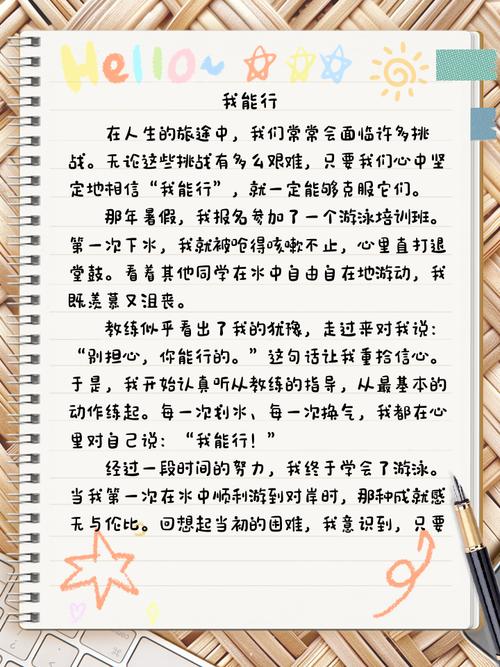 Hello~
我能行
在人生的旅途中，我们常常会面临许多挑
战。无论这些挑战有多么艰难，只要我们心中坚
定地相信“我能行”，就一定能够克服它们。
那年暑假，我报名参加了一个游泳培训班。
第一次下水，我就被呛得咳嗽不止，心里直打退
堂鼓。看着其他同学在水中自由自在地游动，我
既羡慕又沮丧。
教练似乎看出了我的犹豫，走过来对我说：
“别担心，你能行的。”这句话让我重拾信心。
于是，我开始认真听从教练的指导，从最基本的
动作练起。每一次划水、每一次换气，我都在心
里对自己说：“我能行！”
经过一段时间的努力，我终于学会了游泳。
当我第一次在水中顺利游到对岸时，那种成就感
无与伦比。回想起当初的困难，我意识到，只要